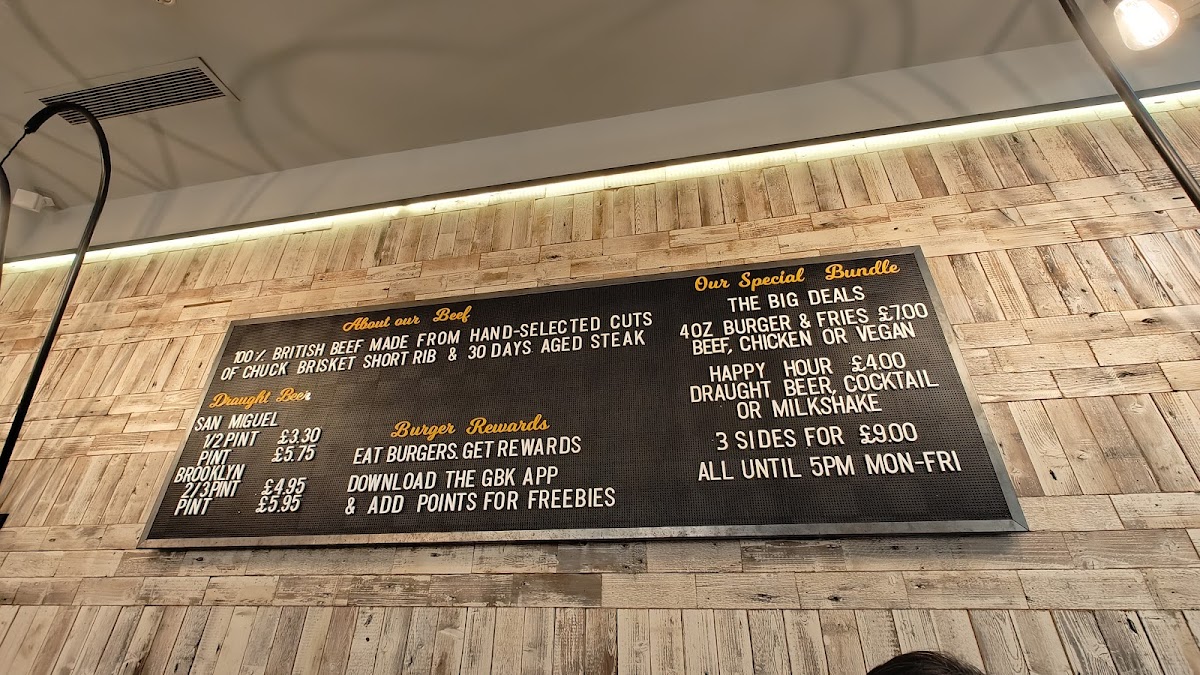 About our Beef
100% BRITISH BEEF MADE FROM HAND-SELECTED CUTS
OF CHUCK BRISKET SHORT RIB & 30 DAYS AGED STEAK
Draught Beer
SAN MIGUEL
1/2 PINT £3.30
PINT £5.75
BROOKLYN
2/3 PINT £4.95
PINT £5.95
Burger Rewards
EAT BURGERS. GET REWARDS
DOWNLOAD THE GBK APP
& ADD POINTS FOR FREEBIES
Our Special Bundle
THE BIG DEALS
4OZ BURGER & FRIES £7.00
BEEF, CHICKEN OR VEGAN
HAPPY HOUR £4.00
DRAUGHT BEER, COCKTAIL
OR MILKSHAKE
3 SIDES FOR £9.00
ALL UNTIL 5PM MON-FRI